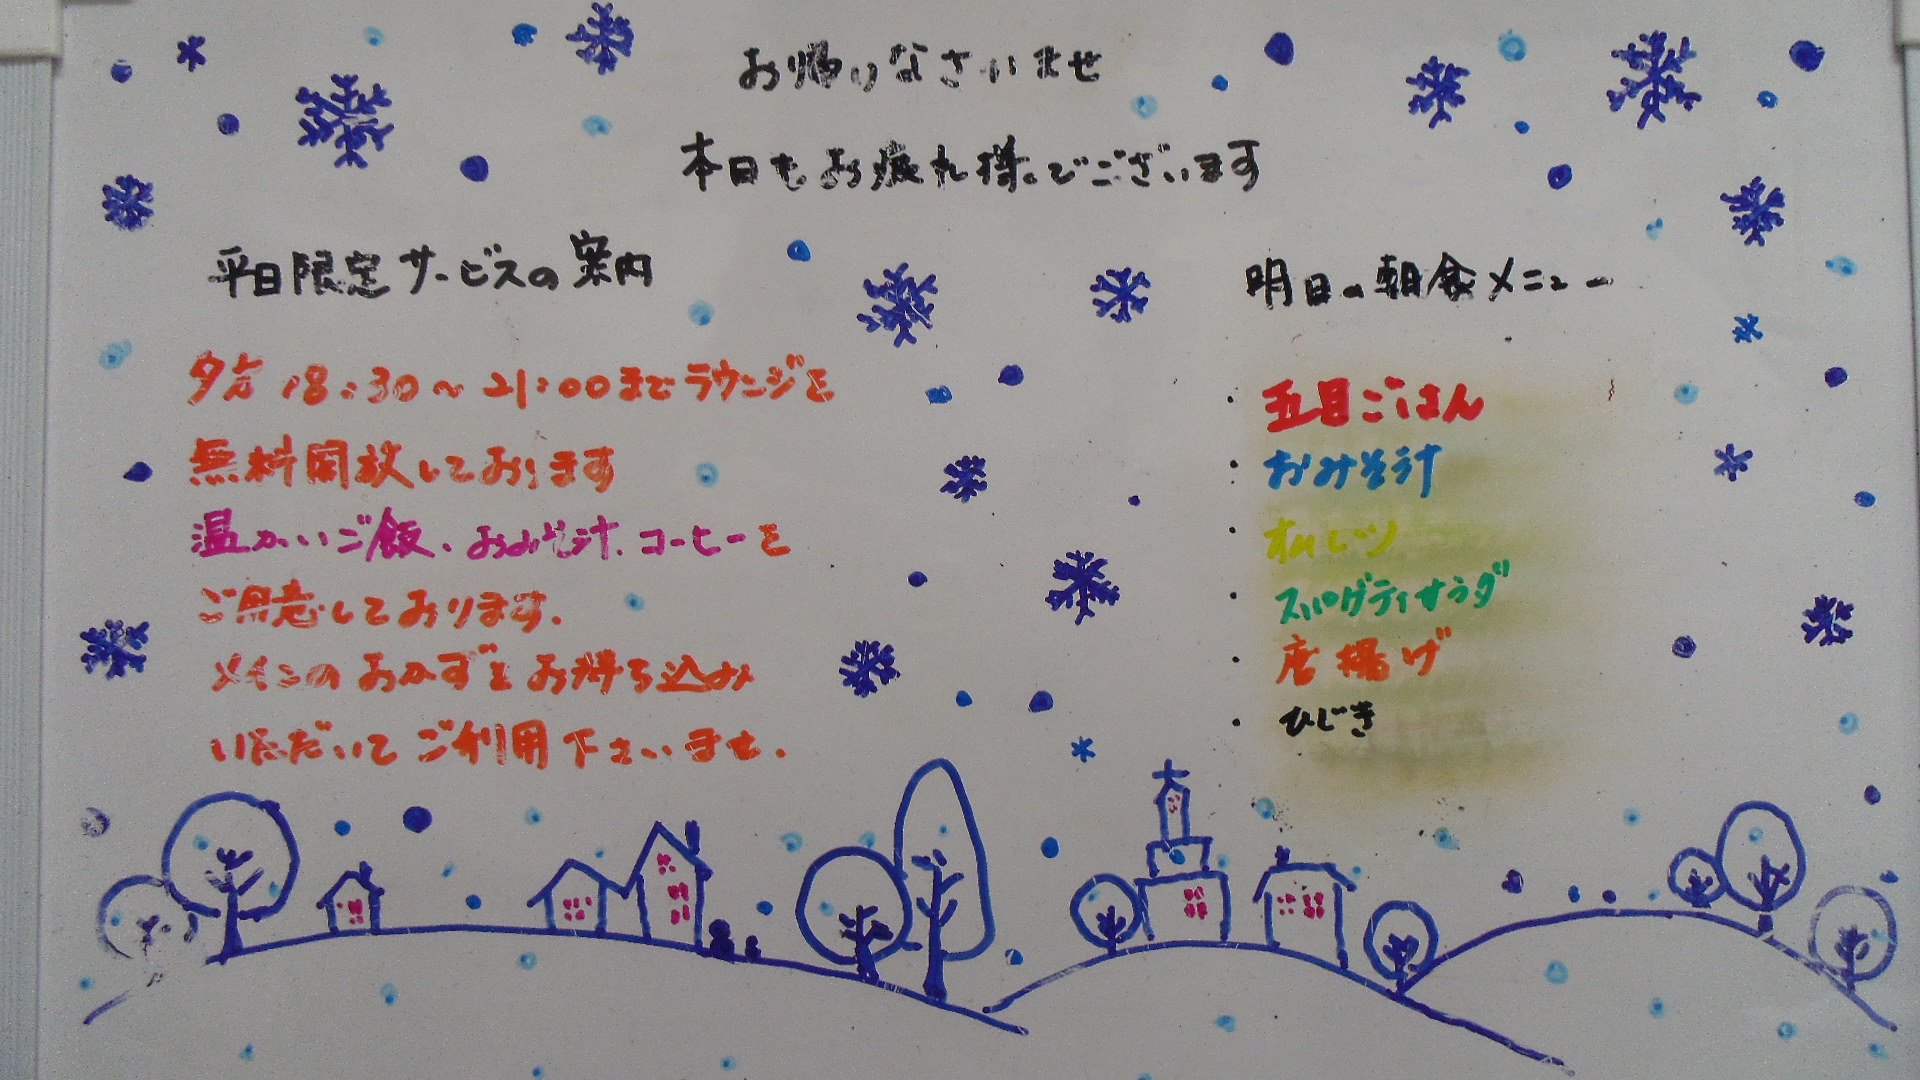 お帰りなさいませ
本日もお疲れ様でございます
平日限定サービスの案内
夕方18:30～21:00までラウンジを
無料開放しております
温かいご飯、おみそ汁、コーヒーを
ご用意しております.
メインのおかずをお持ち込み
いただいてご利用下さいませ.
明日の朝食メニュー
・五目ごはん
・おみそ汁
・オムレツ
・スパゲティサラダ
・唐揚げ
・ひじき